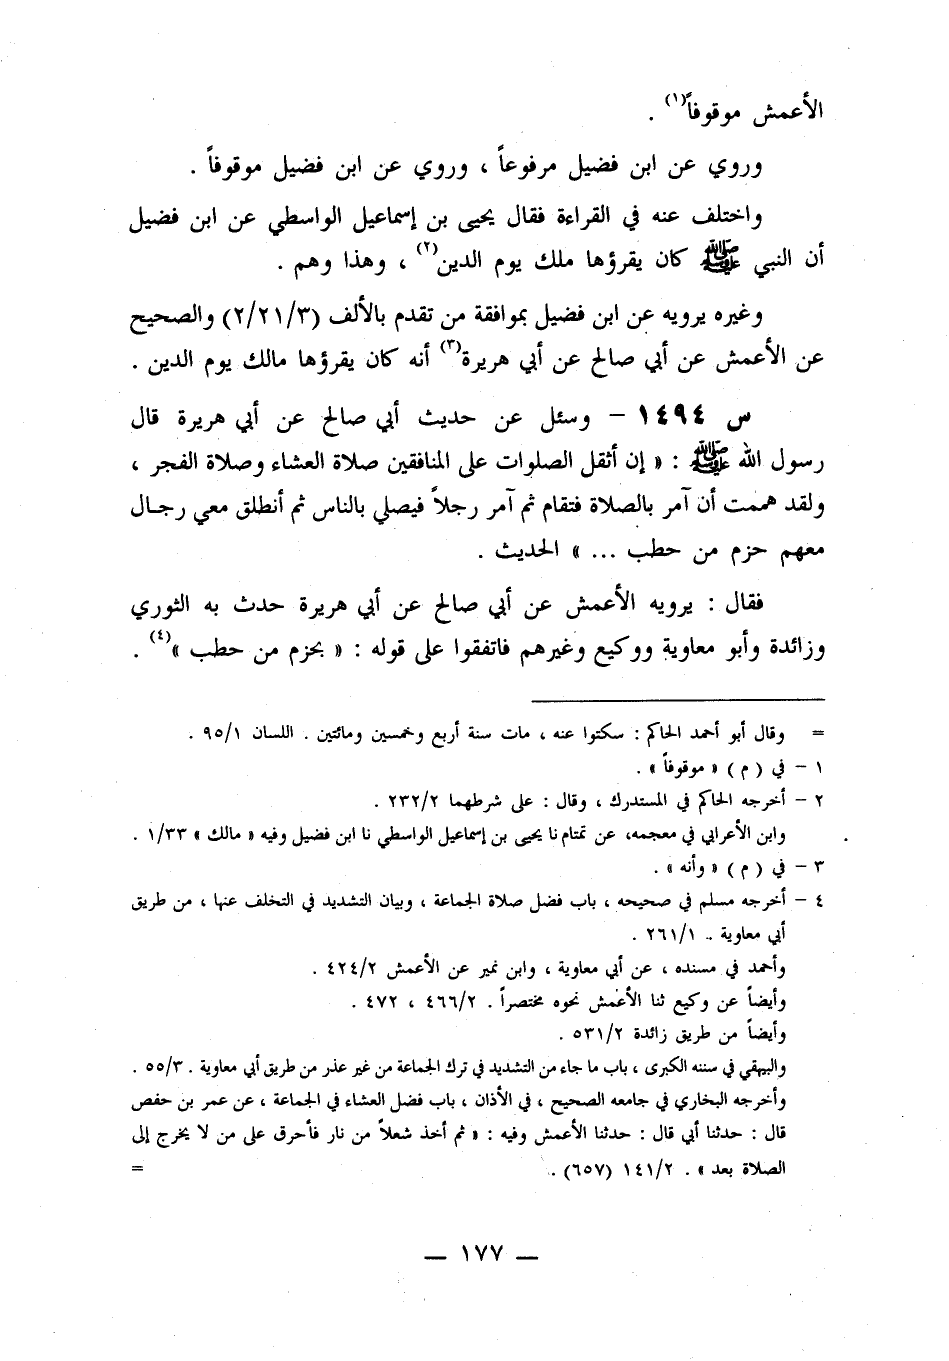 الأعمش موقوفاً(١) .
وروي عن ابن فضيل مرفوعاً ، وروي عن ابن فضيل موقوفاً .
واختلف عنه في القراءة فقال يحيى بن إسماعيل الواسطي عن ابن فضيل
أن النبي ﷺ كان يقرؤها ملك يوم الدين(٢) ، وهذا وهم .
وغيره يرويه عن ابن فضيل بموافقة من تقدم بالألف (٢/٢١/٣) والصحيح
عن الأعمش عن أبي صالح عن أبي هريرة(٣) أنه كان يقرؤها مالك يوم الدين .
س ١٤٩٤ – وسئل عن حديث أبي صالح عن أبي هريرة قال
رسول الله ﷺ : « إن أثقل الصلوات على المنافقين صلاة العشاء وصلاة الفجر ،
ولقد هممت أن آمر بالصلاة فتقام ثم آمر رجلاً فيصلي بالناس ثم أنطلق معي رجال
معهم حزم من حطب ... » الحديث .
فقال : يرويه الأعمش عن أبي صالح عن أبي هريرة حدث به الثوري
وزائدة وأبو معاوية ووكيع وغيرهم فاتفقوا على قوله : « بحزم من حطب »(٤) .
= وقال أبو أحمد الحاكم : سكتوا عنه ، مات سنة أربع وخمسين ومائتين . اللسان ٩٥/١ .
١ – في ( م ) « موقوفاً » .
٢ – أخرجه الحاكم في المستدرك ، وقال : على شرطهما ٢٣٢/٢ .
وابن الأعرابي في معجمه، عن تمتام نا يحيى بن إسماعيل الواسطي نا ابن فضيل وفيه « مالك » ١/٣٣ .
٣ – في ( م ) « وأنه » .
٤ – أخرجه مسلم في صحيحه ، باب فضل صلاة الجماعة ، وبيان التشديد في التخلف عنها ، من طريق
أبي معاوية .. ٢٦١/١ .
وأحمد في مسنده ، عن أبي معاوية ، وابن نمير عن الأعمش ٤٢٤/٢ .
وأيضاً عن وكيع ثنا الأعمش نحوه مختصراً . ٤٦٦/٢ ، ٤٧٢ .
وأيضاً من طريق زائدة ٥٣١/٢ .
والبيهقي في سننه الكبرى ، باب ما جاء من التشديد في ترك الجماعة من غير عذر من طريق أبي معاوية . ٥٥/٣ .
وأخرجه البخاري في جامعه الصحيح ، في الأذان ، باب فضل العشاء في الجماعة ، عن عمر بن حفص
قال : حدثنا أبي قال : حدثنا الأعمش وفيه : « ثم أخذ شعلاً من نار فأحرق على من لا يخرج إلى
الصلاة بعد » . ١٤١/٢ (٦٥٧) . =
— ١٧٧ —